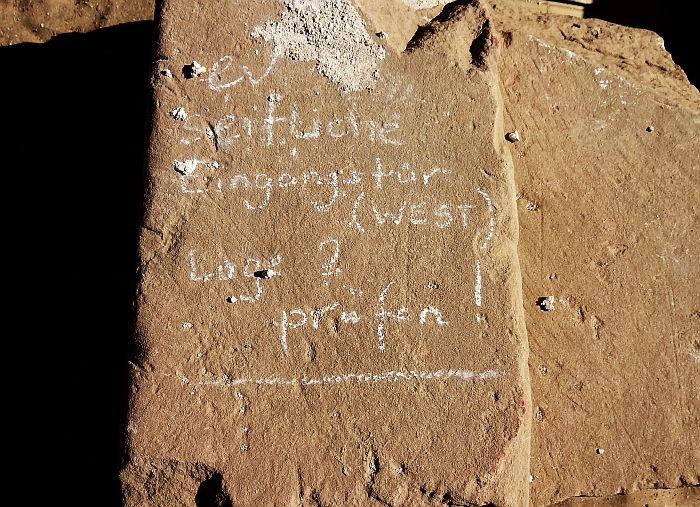 ev
seitliche
Eingangstür
(WEST)
Lage ?
prüfen !